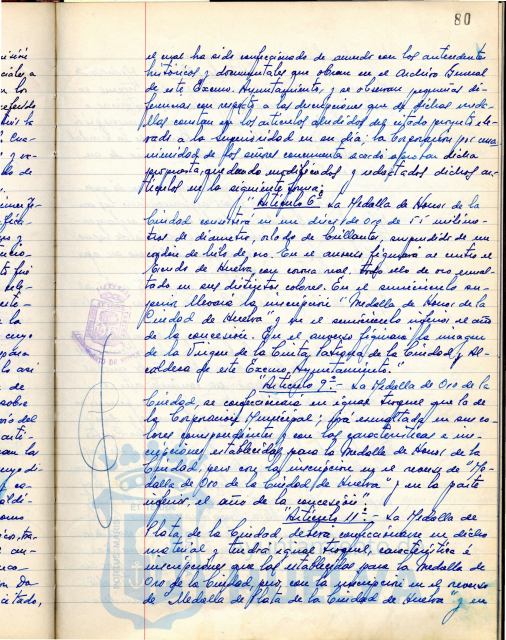 80
el cual ha sido confeccionado de acuerdo con los antecedentes
históricos y documentales que obran en el Archivo General
de este Excmo. Ayuntamiento, y se observan pequeñas di-
ferencias con respecto a las descripciones que de dichas meda-
llas constan en los artículos aludidos del citado proyecto ele-
vado a la Superioridad en su día; la Corporación por una-
nimidad de los señores concurrentes acordó aprobar dicha
propuesta, quedando modificados y adaptados dichos ar-
tículos en la siguiente forma:
"Artículo 6º.- La Medalla de Honor de la
Ciudad consistirá en un disco de Oro de 55 milíme-
tros de diámetro, orlado de brillantes, suspendido de un
cordón de hilo de oro. En el anverso figurará al centro el
Escudo de Huelva, con corona real, todo ello de oro esmal-
tado en sus distintos colores. En el semicírculo su-
perior llevará la inscripción "Medalla de Honor de la
Ciudad de Huelva" y en el semicírculo inferior el año
de la concesión. En el reverso figurará la imagen
de la Virgen de la Cinta, Patrona de la Ciudad y Al-
caldesa de este Excmo. Ayuntamiento."
"Artículo 9º.- La Medalla de Oro de la
Ciudad, se confeccionará en igual troquel que la de
la Corporación Municipal; irá esmaltada en sus co-
lores correspondientes y con las características e ins-
cripciones establecidas para la Medalla de Honor de la
Ciudad pero con la inscripción en el reverso de "Me-
dalla de Oro de la Ciudad de Huelva" y en la parte
inferior, el año de la concesión".
"Artículo 11º.- La Medalla de
Plata, de la Ciudad, deberá confeccionarse en dicho
material y tendrá igual troquel, características e
inscripciones que las establecidas para la Medalla de
Oro de la Ciudad pero, con la inscripción en el reverso
de "Medalla de Plata de la Ciudad de Huelva" y en